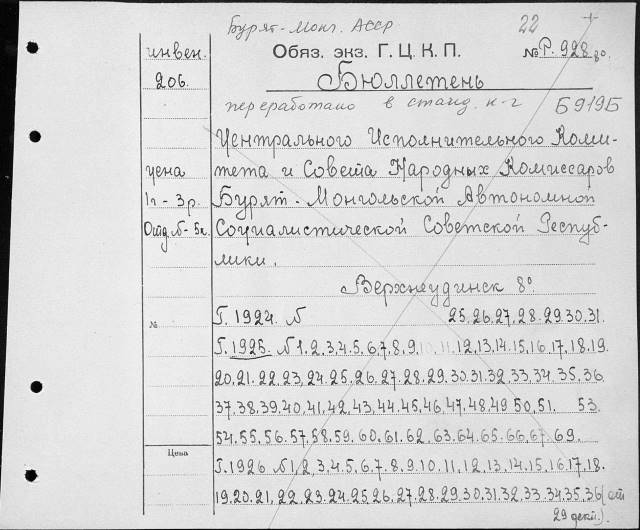 Бурят-Монг. АССР
22
инвен.
Обяз. экз. Г. Ц. К. П.
№ Р. 928 80.
206.
Бюллетень
переработано в станд. к-г
Б919Б
Центрального Исполнительного Коми-
цена
тета и Совета Народных Комиссаров
1г - 3р.
Бурят-Монгольской Автономной
Отд. № - 5к.
Социалистической Советской Респуб-
лики.
Верхнеудинск 8°
№
Г. 1924. № 25.26.27.28.29.30.31.
Г. 1925. № 1.2,3,4.5,6,7,8,9.10.11.12,13,14.15,16.17,18.19.
20.21.22.23,24.25.26.27.28.29.30.31.32.33.34.35.36.
37.38.39.40,41,42,43,44.45,46,47,48,49 50,51. 53.
54.55.56.57.58.59.60.61.62.63.64.65.66,67 69.
Цена
Г. 1926 № 1,2,3,4.5,6.7.8.9.10.11,12,13,14.15.16.17.18.
19.20.21,22.23.24.25.26,27.28.29.30.31.32.33.34.35.36 (от
29 дект.).